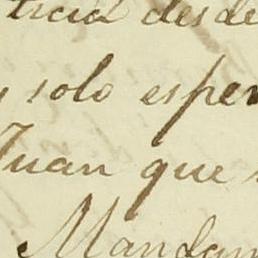 ticia desde
y solo esper
Juan que
Mandam